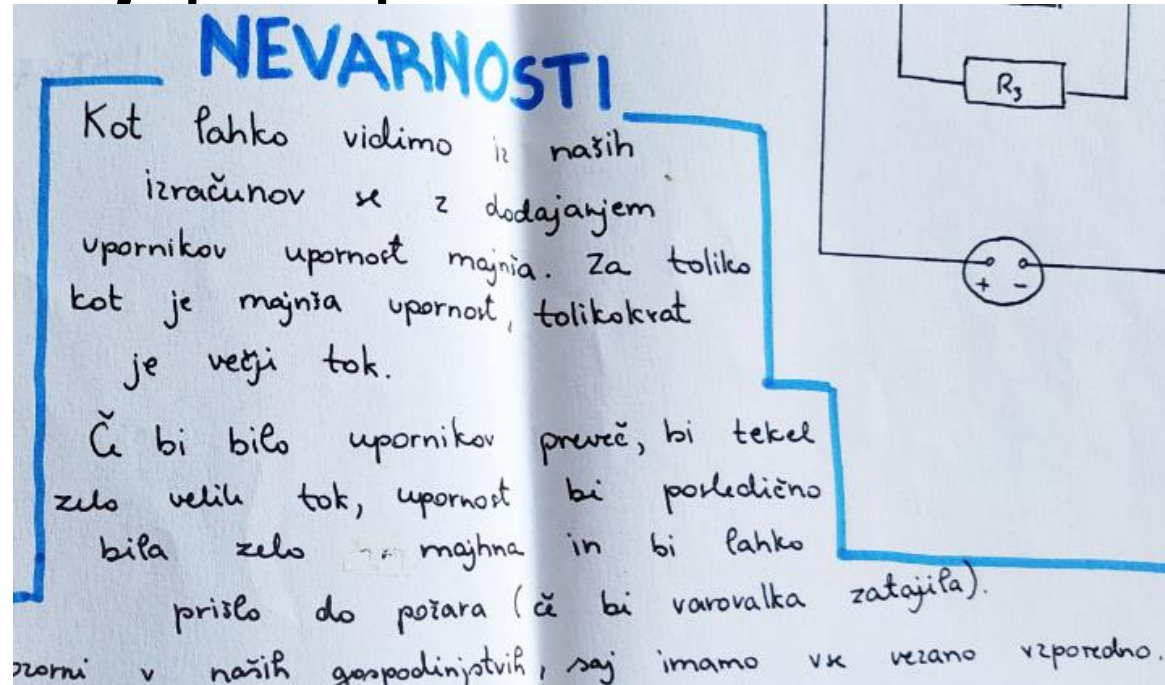 NEVARNOSTI
Kot lahko vidimo iz naših
izračunov se z dodajanjem
upornikov upornost majnša. Za toliko
kot je majnša upornost, tolikokrat
je večji tok.
Če bi bilo upornikov preveč, bi tekel
zelo velik tok, upornost bi posledično
bila zelo majhna in bi lahko
prišlo do požara (če bi varovalka zatajila).
v naših gospodinjstvih, saj imamo vse vezano vzporedno.
R3
+ -